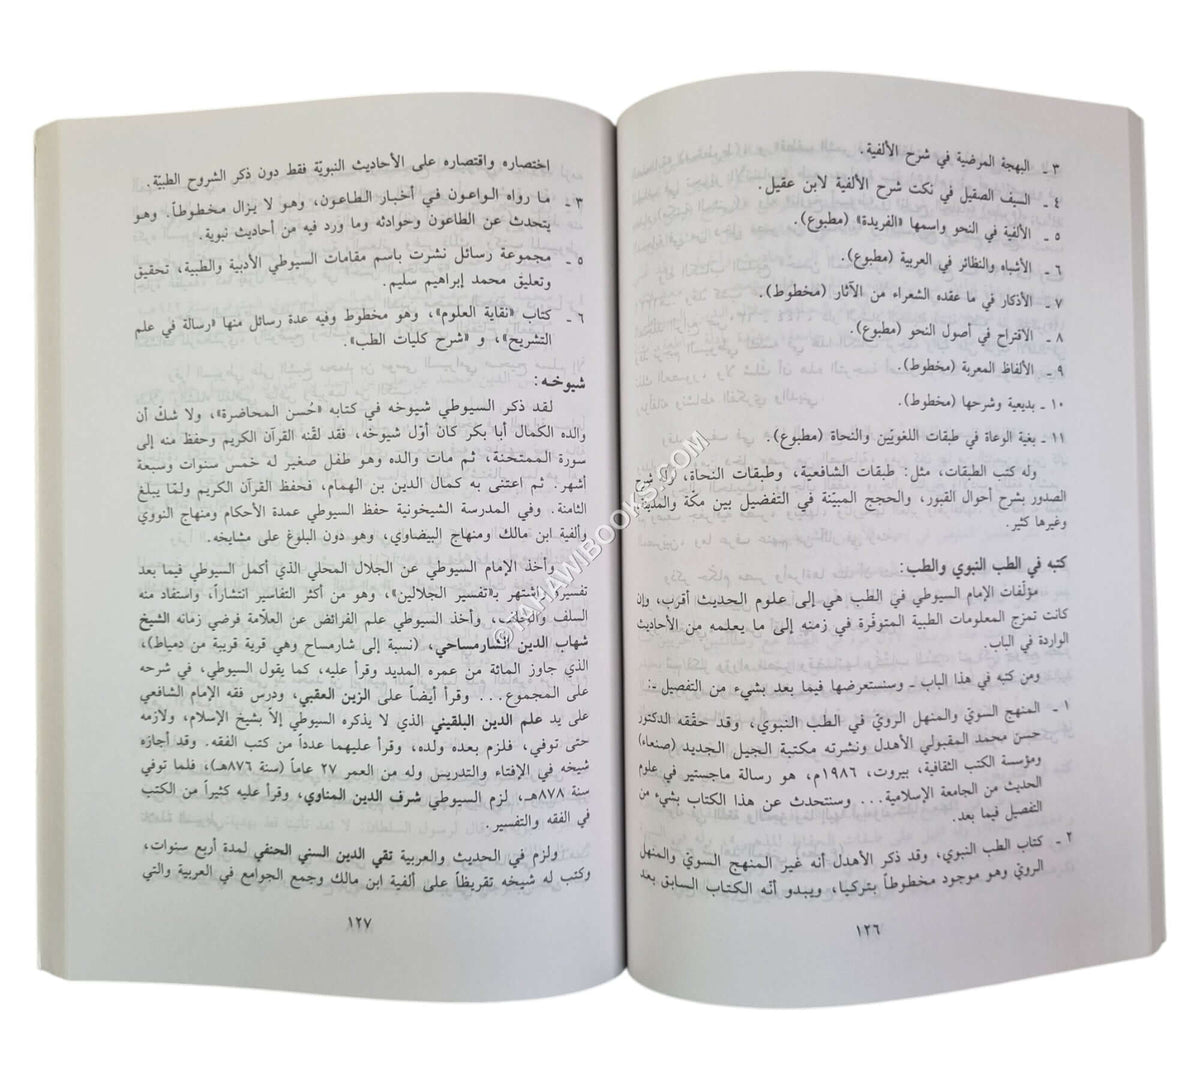 ٣ ـ البهجة المرضية في شرح الألفية.
٤ ـ السيف الصقيل في نكت شرح الألفية لابن عقيل.
٥ ـ الألفية في النحو واسمها «الفريدة» (مطبوع).
٦ ـ الأشباه والنظائر في العربية (مطبوع).
٧ ـ الأذكار في ما عقده الشعراء من الآثار (مخطوط).
٨ ـ الاقتراح في أصول النحو (مطبوع).
٩ ـ الألفاظ المعربة (مخطوط).
١٠ ـ بديعية وشرحها (مخطوط).
١١ ـ بغية الوعاة في طبقات اللغويّين والنحاة (مطبوع).
وله كتب الطبقات، مثل: طبقات الشافعية، وطبقات النحاة، و شرح
الصدور بشرح أحوال القبور، والحجج المبيّنة في التفضيل بين مكّة والمدينة
وغيرها كثير.
كتبه في الطب النبوي والطب:
مؤلّفات الإمام السيوطي في الطب هي إلى علوم الحديث أقرب، وإن
كانت تمزج المعلومات الطبية المتوفّرة في زمنه إلى ما يعلمه من الأحاديث
الواردة في الباب.
ومن كتبه في هذا الباب ـ وسنستعرضها فيما بعد بشيء من التفصيل ـ:
١ ـ المنهج السويّ والمنهل الرويّ في الطب النبوي، وقد حقّقه الدكتور
حسن محمد المقبولي الأهدل ونشرته مكتبة الجيل الجديد (صنعاء)
ومؤسسة الكتب الثقافية، بيروت، ١٩٨٦م، هو رسالة ماجستير في علوم
الحديث من الجامعة الإسلامية... وسنتحدث عن هذا الكتاب بشيء من
التفصيل فيما بعد.
٢ ـ كتاب الطب النبوي، وقد ذكر الأهدل أنه غير المنهج السويّ والمنهل
الرويّ وهو موجود مخطوطاً بتركيا، ويبدو أنّه الكتاب السابق بعد
١٢٦
اختصاره واقتصاره على الأحاديث النبويّة فقط دون ذكر الشروح الطبيّة.
٣ ـ ما رواه الواعون في أخبار الطاعون، وهو لا يزال مخطوطاً. وهو
يتحدث عن الطاعون وحوادثه وما ورد فيه من أحاديث نبوية.
٥ ـ مجموعة رسائل نشرت باسم مقامات السيوطي الأدبية والطبية، تحقيق
وتعليق محمد إبراهيم سليم.
٦ ـ كتاب «نقاية العلوم»، وهو مخطوط وفيه عدة رسائل منها «رسالة في علم
التشريح»، و «شرح كليات الطب».
شيوخه:
لقد ذكر السيوطي شيوخه في كتابه «حُسن المحاضرة»، ولا شكّ أن
والده الكمال أبا بكر كان أوّل شيوخه، فقد لقّنه القرآن الكريم وحفظ منه إلى
سورة الممتحنة، ثم مات والده وهو طفل صغير له خمس سنوات وسبعة
أشهر. ثم اعتنى به كمال الدين بن الهمام، فحفظ القرآن الكريم ولمّا يبلغ
الثامنة. وفي المدرسة الشيخونية حفظ السيوطي عمدة الأحكام ومنهاج النووي
وألفية ابن مالك ومنهاج البيضاوي، وهو دون البلوغ على مشايخه.
وأخذ الإمام السيوطي عن الجلال المحلي الذي أكمل السيوطي فيما بعد
تفسيره واشتهر بـ«تفسير الجلالين»، وهو من أكثر التفاسير انتشاراً، واستفاد منه
السلف والخلف، وأخذ السيوطي علم الفرائض عن العلاّمة فرضي زمانه الشيخ
شهاب الدين الشارمساحي، (نسبة إلى شارمساح وهي قرية قريبة من دمياط)،
الذي جاوز المائة من عمره المديد وقرأ عليه، كما يقول السيوطي، في شرحه
على المجموع... وقرأ أيضاً على الزين العقبي، ودرس فقه الإمام الشافعي
على يد علم الدين البلقيني الذي لا يذكره السيوطي إلاّ بشيخ الإسلام، ولازمه
حتى توفي، فلزم بعده ولده، وقرأ عليهما عدداً من كتب الفقه. وقد أجازه
شيخه في الإفتاء والتدريس وله من العمر ٢٧ عاماً (سنة ٨٧٦هـ)، فلما توفي
سنة ٨٧٨هـ، لزم السيوطي شرف الدين المناوي، وقرأ عليه كثيراً من الكتب
في الفقه والتفسير.
ولزم في الحديث والعربية تقي الدين السني الحنفي لمدة أربع سنوات،
وكتب له شيخه تقريظاً على ألفية ابن مالك وجمع الجوامع في العربية والتي
١٢٧
© TAHAWIBOOKS.COM